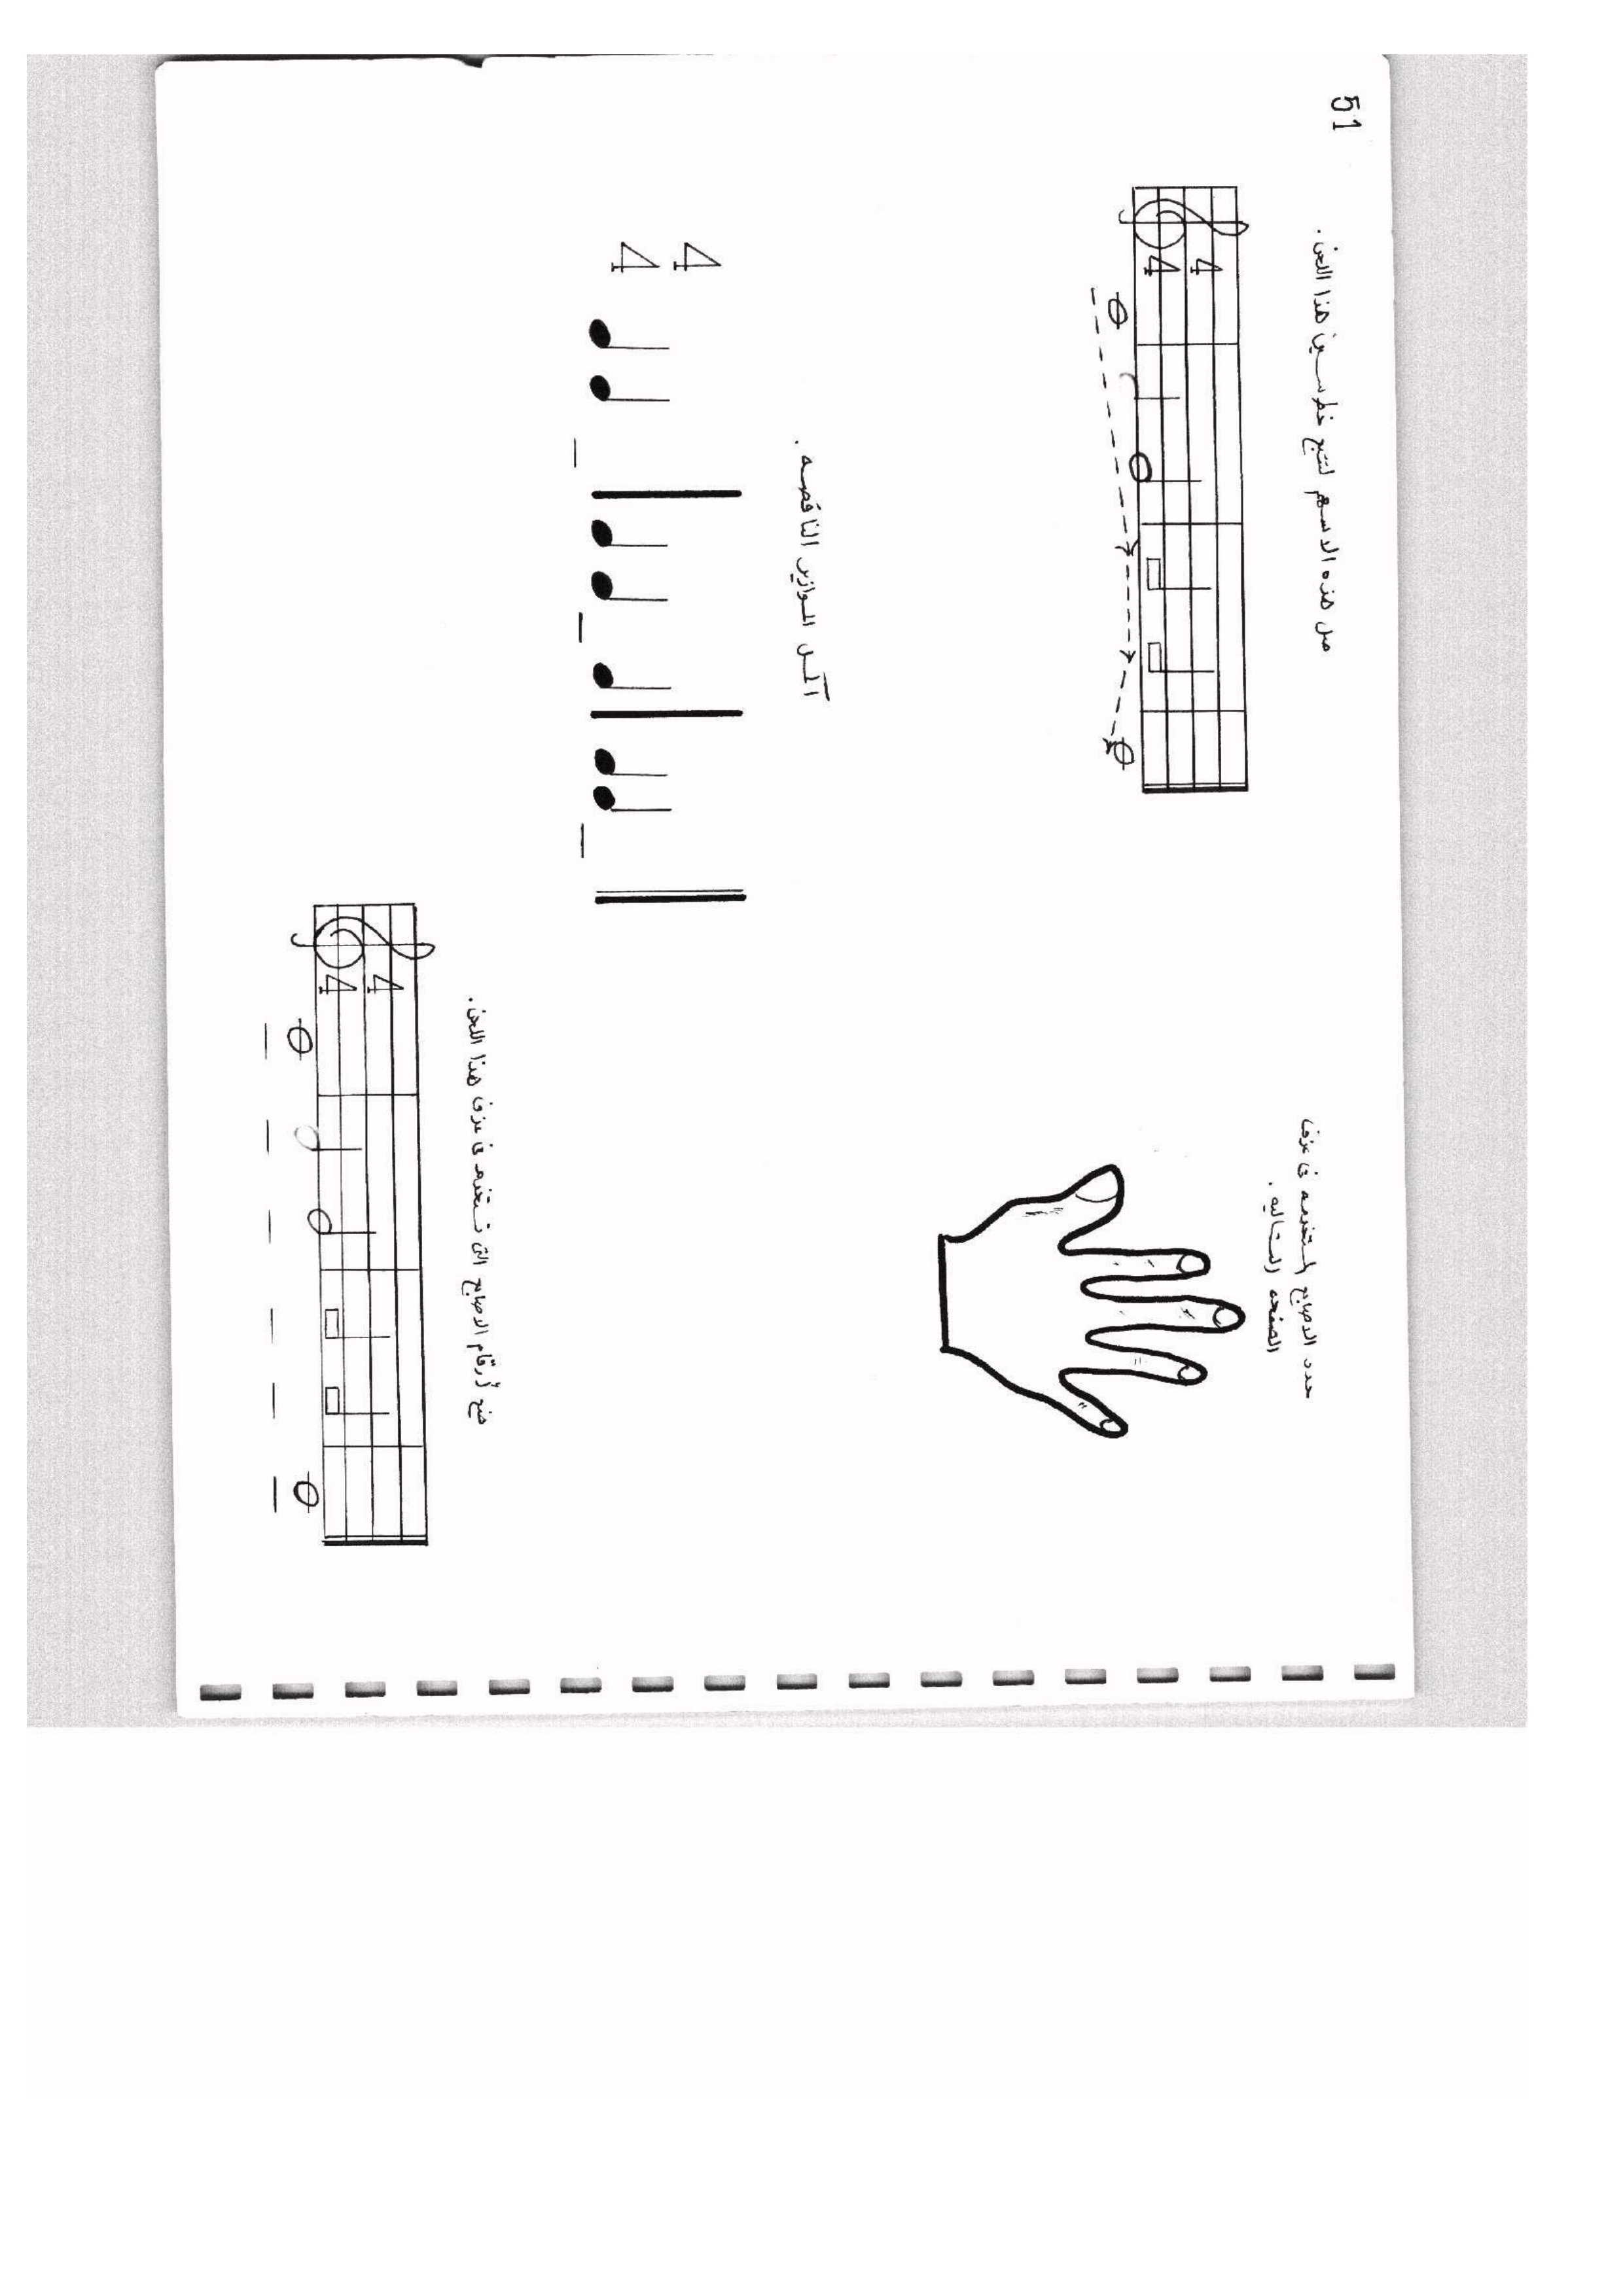 51
صل هذه الاسهم لتتبع خط سير هذا اللحن.
4
4
حدد الاصابع المستخدمه فى عزف
الصفحه التاليه.
أكمل الموازير الناقصه.
4
4
ضع أرقام الاصابع التى تستخدم فى عزف هذا اللحن.
4
4